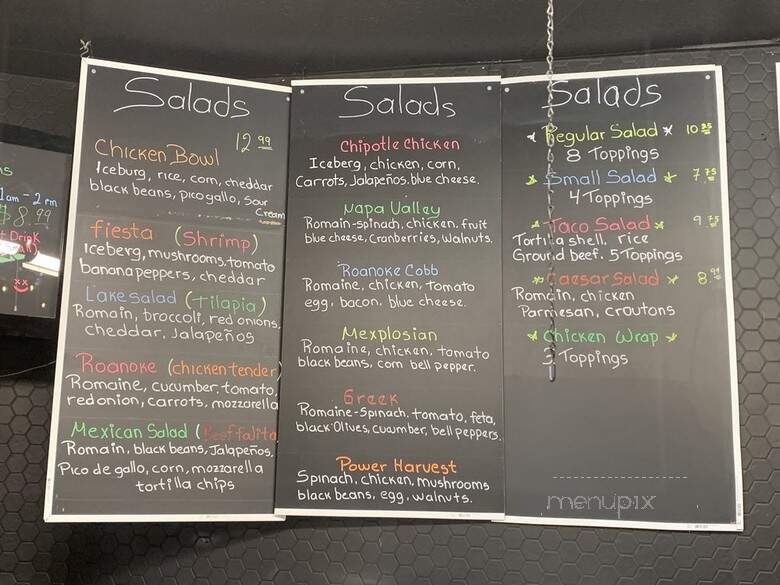 1am - 2pm
$8.99
Salads
12 99
Chicken Bowl
Iceburg, rice, corn, cheddar
black beans, pico gallo, sour
Cream
fiesta (Shrimp)
Iceberg, mushrooms, tomato
banana peppers, cheddar
Lake salad (Tilapia)
Romain, broccoli, red onions,
cheddar, Jalapeños
Roanoke (chicken tender)
Romaine, cucumber, tomato,
red onion, carrots, mozzarella
Mexican Salad (Beef fajita
Romain, black beans, Jalapeños,
Pico de gallo, corn, mozzarella
tortilla chips
Salads
Chipotle Chicken
Iceberg, chicken, corn,
Carrots, Jalapeños, blue cheese.
Napa Valley
Romain-spinach, chicken, fruit
blue cheese, Cranberries, walnuts.
Roanoke Cobb
Romaine, chicken, tomato
egg, bacon, blue cheese.
Mexplosian
Romaine, chicken, tomato
black beans, corn bell pepper.
Greek
Romaine-Spinach, tomato, feta,
black Olives, cucumber, bell peppers.
Power Harvest
Spinach, chicken, mushrooms
black beans, egg, walnuts.
Salads
Regular Salad 10 25
8 Toppings
Small Salad 7.75
4 Toppings
Taco Salad 9 75
Tortilla shell, rice
Ground beef, 5 Toppings
Caesar Salad 8.99
Romain, chicken
Parmesan, croutons
Chicken Wrap
3 Toppings
menupix